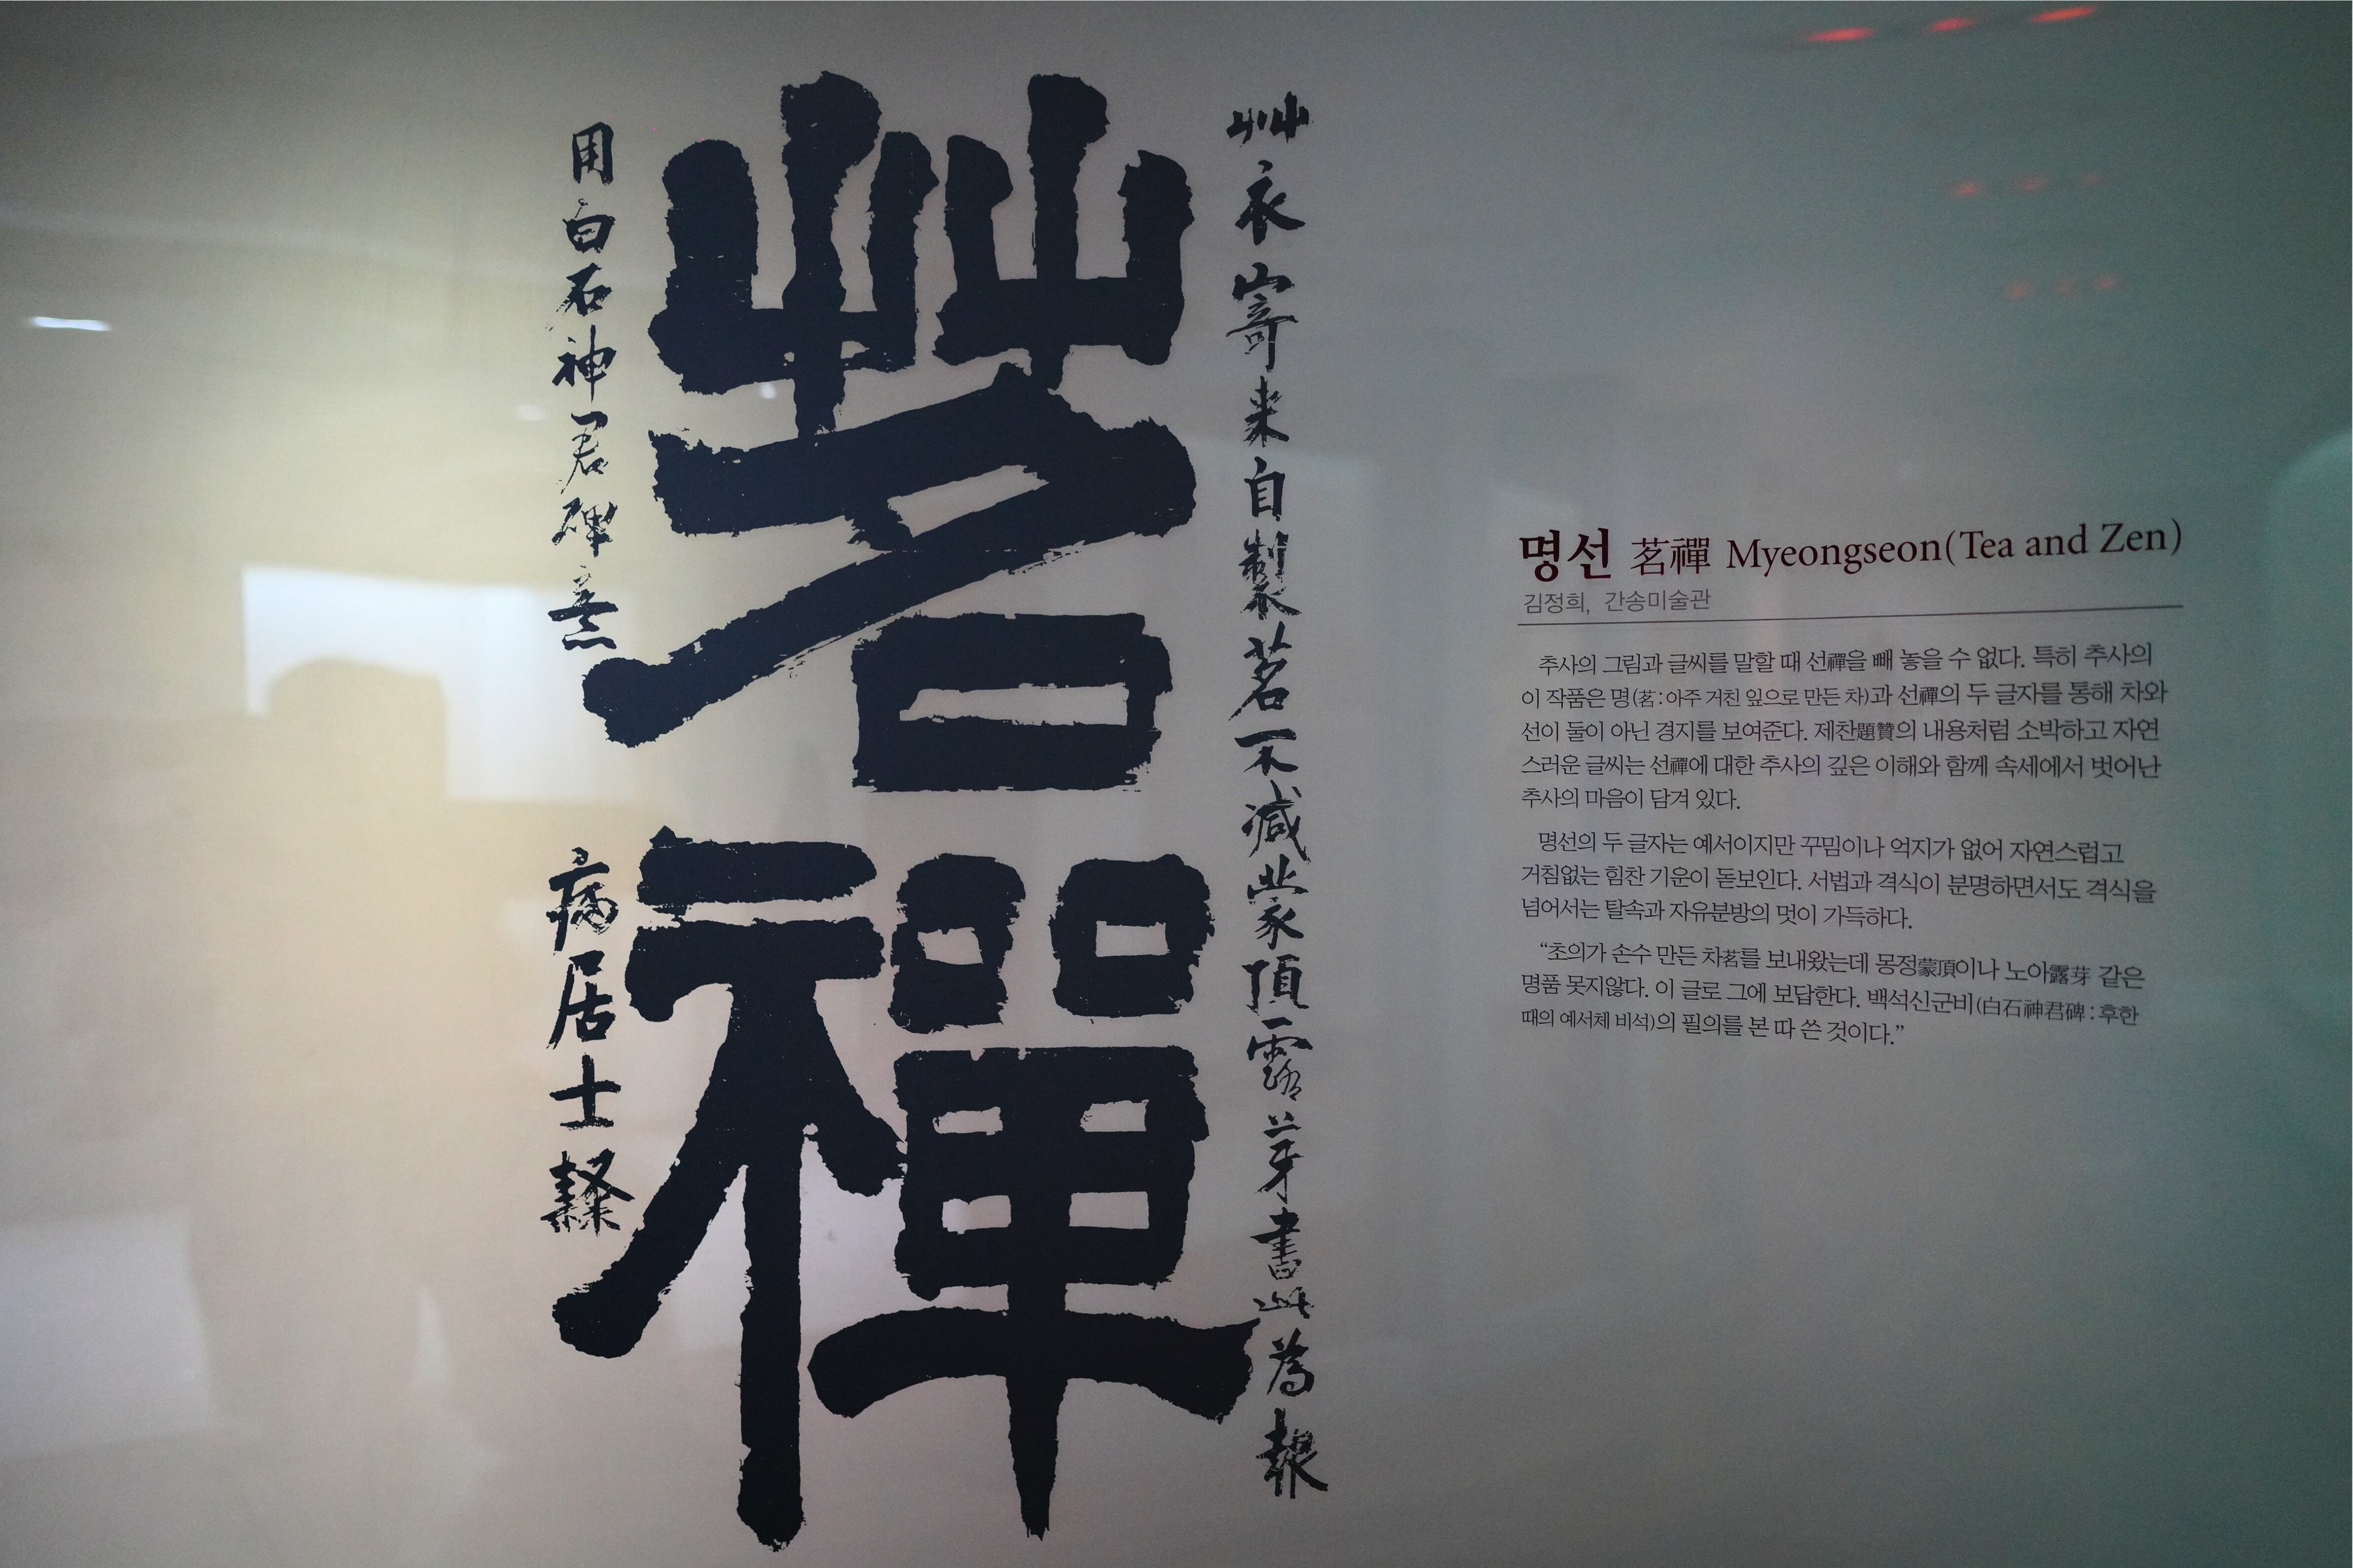 茗禪
艸衣寄來自製茗不減蒙頂露芽書此爲報
用白石神君碑意
病居士隸
명선 茗禪 Myeongseon(Tea and Zen)
김정희, 간송미술관
추사의 그림과 글씨를 말할 때 선禪을 빼 놓을 수 없다. 특히 추사의
이 작품은 명(茗:아주 거친 잎으로 만든 차)과 선禪의 두 글자를 통해 차와
선이 둘이 아닌 경지를 보여준다. 제찬題贊의 내용처럼 소박하고 자연
스러운 글씨는 선禪에 대한 추사의 깊은 이해와 함께 속세에서 벗어난
추사의 마음이 담겨 있다.
명선의 두 글자는 예서이지만 꾸밈이나 억지가 없어 자연스럽고
거침없는 힘찬 기운이 돋보인다. 서법과 격식이 분명하면서도 격식을
넘어서는 탈속과 자유분방의 멋이 가득하다.
“초의가 손수 만든 차茗를 보내왔는데 몽정蒙頂이나 노아露芽 같은
명품 못지않다. 이 글로 그에 보답한다. 백석신군비(白石神君碑:후한
때의 예서체 비석)의 필의를 본 따 쓴 것이다.”